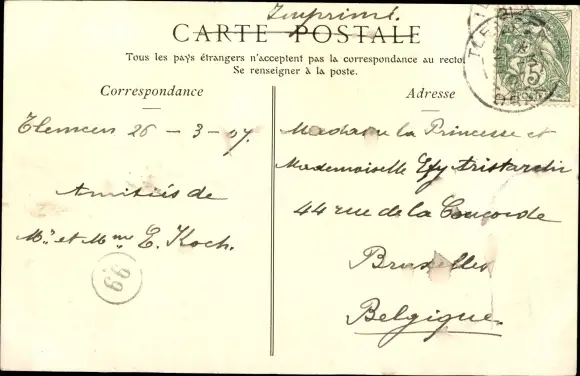 Imprimé.
CARTE POSTALE
Tous les pays étrangers n'acceptent pas la correspondance au recto.
Se renseigner à la poste.
Correspondance
Tlemcen 26 - 3 - 07.
Amitiés de
Mr et Mme E. Koch.
99
Adresse
Madame la Princesse et
Mademoiselle Efy Aristarchi
44 rue de la Concorde
Bruxelles
Belgique
5